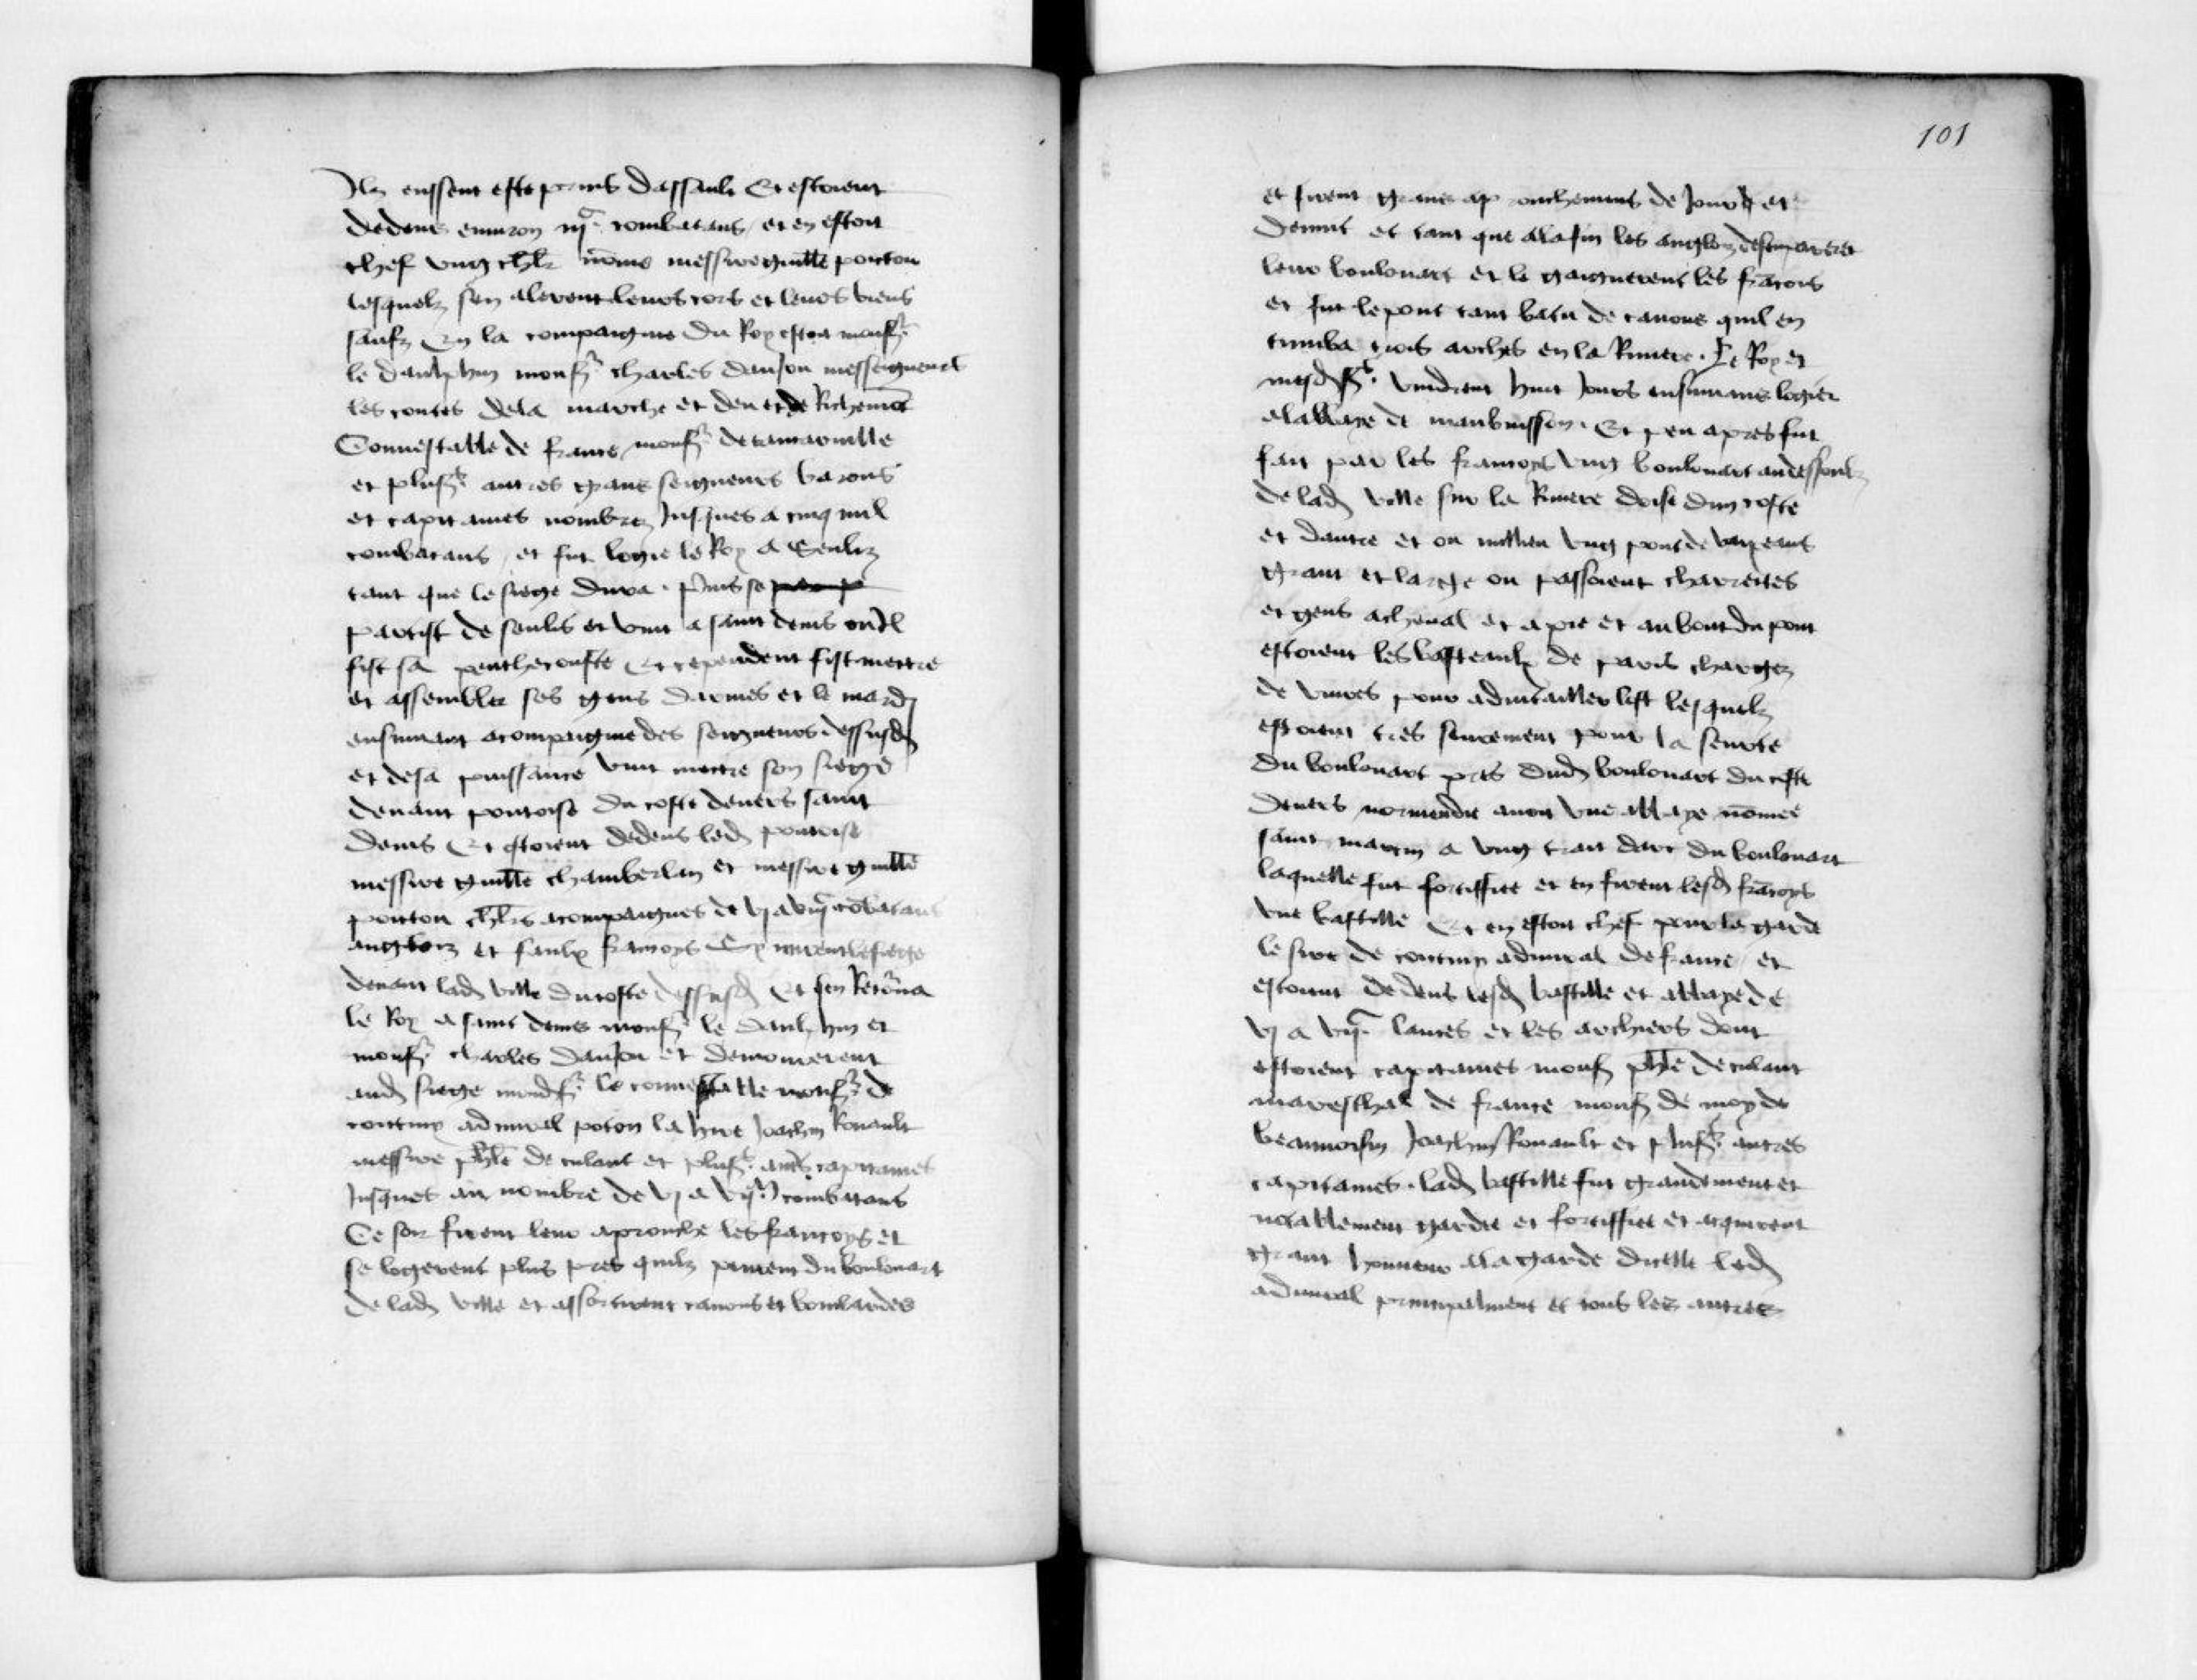 Ilz eussent este prins dassault Et estoient
dedens enuiron iijc combatans / et en estoit
chef vng chlr nōme messire guille poicton
lesquelz sen alerent leurs cors et leurs biens
saufz En la compaignie du Roy estoit monsr
le daulphin monsr charles danjou messeigneurs
les contes dela marche et deu et de Richemōt
Connestable de france monsr de tancaruille
et plusrs autres grans seigneurs barons
et capitaines nombrez Jusques a cinq mil
combatans / et fut logie le Roy a Senliz
tant que le siege dura . Puis se
partist de senlis et vint a saint denis ou il
fist sa penthecouste Et cependent fist mectre
et assembler ses gens darmes et le mardj
ensuiuant acompaigne des seigneurs dessusd
et desa puissance vint mectre son siege
deuant pontoise du coste deuers saint
denis Et estoient dedens led pontoise
messire guille chamberlan et messire guille
poicton chlrs acompaignes de vj a vijc cōbatans
anglois et faulx francoys Ep mirent le siege
deuant lad ville du coste dessusd Et sen Retōrna
le Roy a saint denis monsr le daulphin et
monsr charles danjou et demourerent
aud siege mondsr le connestable monsr de
coctiuy admiral poton la hire Joachin Rouault
messire phle de culant et plusrs autrs capitaines
Jusques au nombre de vj a vijm combatans
Ce soir firent leur aprouche les francoys et
se logerent plus pres quilz peurent du boulouart
de lad ville et assortirent canons et bombardes
101
et firent grans aprouchemens de Jour et
denuit et tant que alafin les anglois desemparerēt
leur boulouart et le gaignerent les frācois
et fut le pont tant batu de canons quil en
tumba trois arches en la Riuiere . Le Roy et
mesdsrs vindrent huit Jours ensuiuans logier
alabbaye de maubuisson . Et peu apres fut
fait par les francoys vng boulouart au dessoubz
de lad ville sur la Riuiere doise dun coste
et dautre et ou millieu vng pont de bateaux
grant et large ou passoient charrettes
et gens acheual et apie et au bout du pont
estoient les basteaulx de paris chargez
de viures pour aduitailler lost lesquelz
estoient tres seurement pour la seurte
du boulouart pres dud boulouart du coste
deuers normendie auoit vne abbaye nōmee
saint martin a vng trait darc du boulouart
laquelle fut fortiffiee et en firent lesd frācoys
vne bastille Et en estoit chef pour la garde
le sire de coctiuy admiral de france / et
estoient dedens lesd bastille et abbaye de
vj a vijc lances et les archiers dont
estoient capitaines mons phle de culant
mareschal de france mons de moy de
beauuoisin Joachin Rouault et plusrs autres
capitaines . lad bastille fut grandement et
notablement gardee et fortiffiee et acquirent
grant honneur ala garde dicelle led
admiral principalment et tous les autres